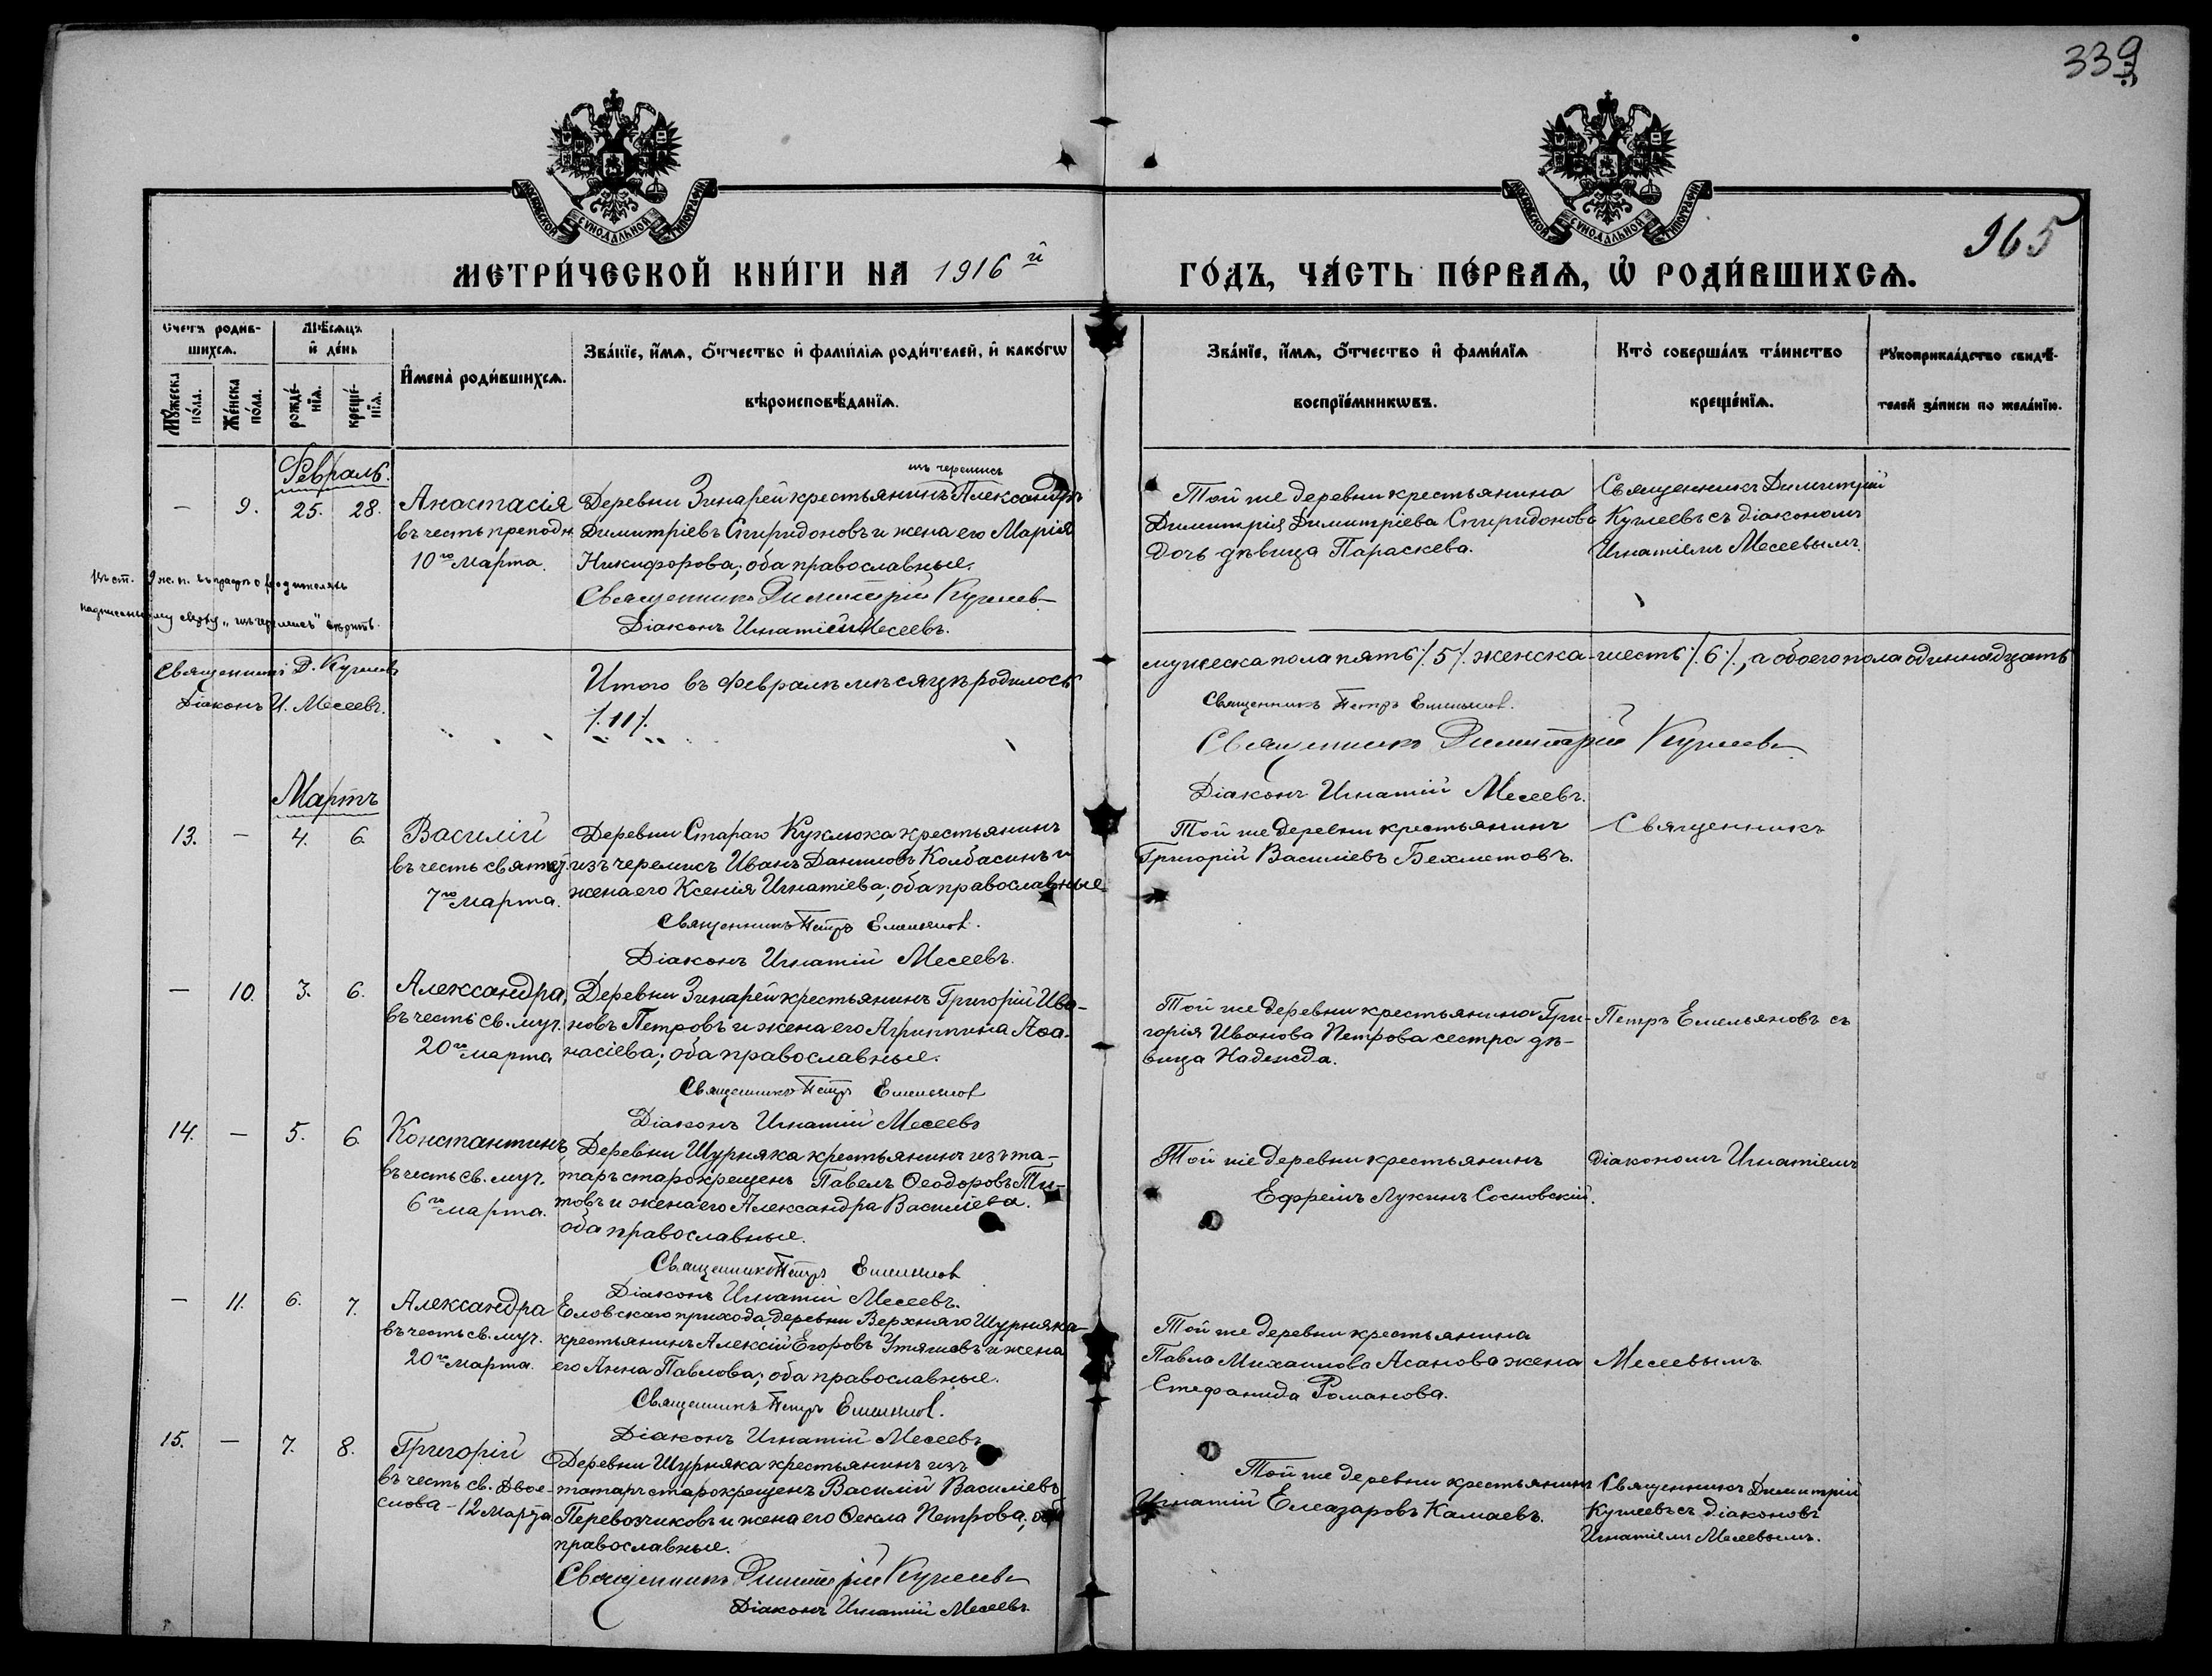 339
965
МОСКОВСКОЙ СѴНОДАЛЬНОЙ ТИПОГРАФІИ
МОСКОВСКОЙ СѴНОДАЛЬНОЙ ТИПОГРАФІИ
МЕТРИ́ЧЕСКОЙ КНИ́ГИ НА 1916й ГО́ДЪ, ЧА́СТЬ ПЕ́РВАѦ, Ѽ РОДИ́ВШИХСѦ.
Счетъ родив-
шихсѧ.
Мꙋжеска по́ла.
Же́нска по́ла.
Мѣ́сяцъ
и҆ де́нь
рожде́-
нїѧ.
креще́-
нїѧ.
И҆мена̀ роди́вшихсѧ.
Зва́нїе, и҆́мѧ, ѻ҆́тчество и҆ фами́лїѧ роди́телей, и҆ како́гѡ
вѣроисповѣ́данїѧ.
Зва́нїе, и҆́мѧ, ѻ҆́тчество и҆ фами́лїѧ
воспрїе́мникѡвъ.
Кто̀ соверша́лъ та́инство
креще́нїѧ.
Рꙋкоприкла́дство свидѣ́-
телей за́писи по жела́нїю.
Февраль.
— 9. 25. 28.
Анастасія
въ честь преподн.
10го марта.
изъ черемисъ
Деревни Зинарей крестьянинъ Александръ
Димитріевъ Спиридоновъ и жена его Марія
Никифорова; оба православные.
Священникъ Димитрій Кугшевъ
Діаконъ Игнатій Месеевъ.
Той же деревни крестьянина
Димитрія Димитріева Спиридонова
дочь дѣвица Параскева.
Священникъ Димитрій
Кугшеевъ съ діакономъ
Игнатіемъ Месеевымъ.
Въ ст. 9 ж. п. въ графѣ о родителяхъ
надписанному сверху „изъ черемисъ" вѣрить.
Священникъ Д. Кугшевъ
Діаконъ И. Месеевъ.
Итого въ Февралѣ мѣсяцѣ родилось
мужеска пола пять /.5/. женска - шесть /.6./., а обоего пола одиннадцать
/.11/.
Священникъ Петръ Емельяновъ.
Священникъ Димитрій Кугшеевъ
Діаконъ Игнатій Месеевъ.
Мартъ
13. — 4. 6.
Василій
въ честь святаго
7го марта.
Деревни Стараго Куклюка крестьянинъ
изъ черемисъ Иванъ Даниловъ Колбасинъ и
жена его Ксенія Игнатіева; оба православные
Священникъ Петръ Емельяновъ.
Діаконъ Игнатій Месеевъ.
Той же деревни крестьянинъ
Григорій Василіевъ Бехметовъ.
Священникъ
— 10. 3. 6.
Александра,
въ честь св. муч.
20го марта
Деревни Зинарей крестьянинъ Григорій Ива-
новъ Петровъ и жена его Агриппина Аѳа-
насіева; оба православные.
Священникъ Петръ Емельяновъ
Діаконъ Игнатій Месеевъ
Той же деревни крестьянина Гри-
горія Иванова Петрова сестра дѣ-
вица Надежда.
Петръ Емельяновъ съ
14. — 5. 6.
Константинъ,
въ честь св. муч.
6го марта.
Деревни Шурняка крестьянинъ изъ та-
таръ старокрещенъ Павелъ Ѳеодоровъ Ти-
товъ и жена его Александра Василіева.
оба православные.
Священникъ Петръ Емельяновъ
Діаконъ Игнатій Месеевъ.
Той же деревни крестьянинъ
Ефремъ Лукинъ Сосновскій.
діакономъ Игнатіемъ
— 11. 6. 7.
Александра
въ честь св. муч.
20го марта.
Еловскаго прихода, деревни Верхняго Шурняка
крестьянинъ Алексій Егоровъ Утяшевъ и жена
его Анна Павлова; оба православные.
Священникъ Петръ Емельяновъ.
Діаконъ Игнатій Месеевъ
Той же деревни крестьянина
Павла Михаилова Асанова жена
Стефанида Романова.
Месеевымъ
15. — 7. 8.
Григорій
въ честь св. Двое-
слова - 12 марта
Деревни Шурняка крестьянинъ изъ
татаръ старокрещенъ Василій Василіевъ
Перевозчиковъ и жена его Ѳекла Петрова; оба
православные.
Священникъ Димитрій Кугшеевъ
Діаконъ Игнатій Месеевъ.
Той же деревни крестьянинъ
Игнатій Елеазаровъ Камаевъ.
Священникъ Димитрій
Кугшеевъ съ діакономъ
Игнатіемъ Месеевымъ.